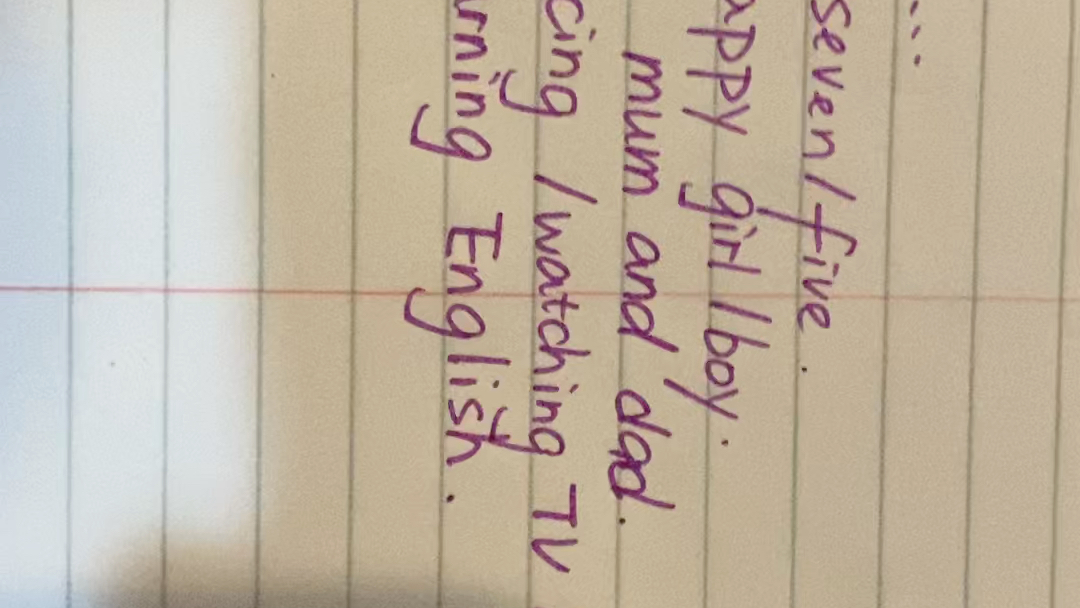 ...
seven / five.
appy girl / boy.
mum and dad.
cing / watching TV
rning English.